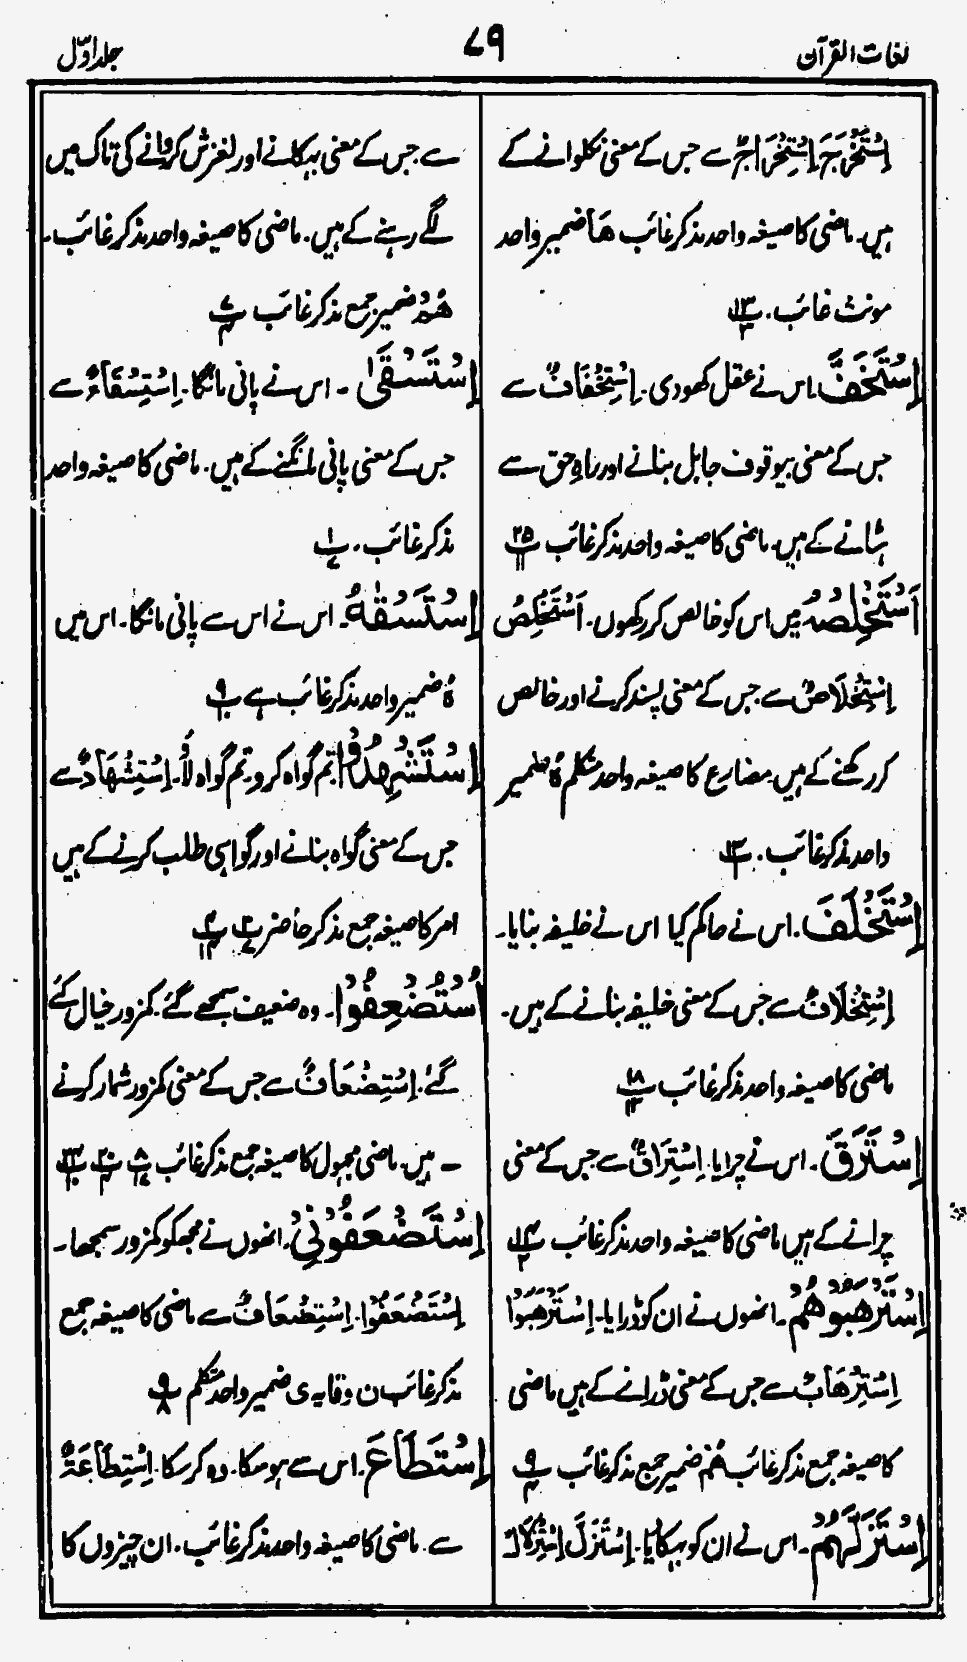 لغات القرآن
۷۹
جلد اوّل
اِسْتَخْرَجَ اِسْتِخْرَاجٌ سے جس کے معنی نکلوانے کے
ہیں۔ ماضی کا صیغہ واحد مذکر غائب ھَا ضمیر واحد
مونث غائب۔
اِسْتَخَفَّ۔ اس نے عقل کھو دی۔ اِسْتِخْفَافٌ سے
جس کے معنی بیوقوف جاہل بنانے اور راہِ حق سے
ہٹانے کے ہیں۔ ماضی کا صیغہ واحد مذکر غائب پ ۲۵ ۱۱
اَسْتَخْلِصْهُ میں اس کو خالص کر رکھوں۔ اَسْتَخْلِصُ
اِسْتِخْلَاصٌ سے جس کے معنی پسند کرنے اور خالص
کر رکھنے کے ہیں۔ مضارع کا صیغہ واحد متکلم ہٗ ضمیر
واحد مذکر غائب۔
اِسْتَخْلَفَ۔ اس نے حاکم کیا اس نے خلیفہ بنایا۔
اِسْتِخْلَافٌ سے جس کے معنی خلیفہ بنانے کے ہیں۔
ماضی کا صیغہ واحد مذکر غائب پ ۱۸ ۱۳
اِسْتَرَقَ۔ اس نے چرایا۔ اِسْتِرَاقٌ سے جس کے معنی
چرانے کے ہیں ماضی کا صیغہ واحد مذکر غائب پ ۱۴ ۲
اِسْتَرْهَبُوْهُمْ۔ انھوں نے ان کو ڈرایا۔ اِسْتَرْهَبُوْا
اِسْتِرْهَابٌ سے جس کے معنی ڈرانے کے ہیں ماضی
کا صیغہ جمع مذکر غائب ھُمْ ضمیر جمع مذکر غائب پ ۹ ۴
اِسْتَزَلَّهُمْ۔ اس نے ان کو بہکایا۔ اِسْتَزَلَّ اِسْتِزْلَالٌ
سے جس کے معنی بہکانے اور لغزش کروانے کی تاک میں
لگے رہنے کے ہیں۔ ماضی کا صیغہ واحد مذکر غائب۔
ھُمْ ضمیر جمع مذکر غائب
اِسْتَسْقٰی۔ اس نے پانی مانگا۔ اِسْتِسْقَاءٌ سے
جس کے معنی پانی مانگنے کے ہیں۔ ماضی کا صیغہ واحد
مذکر غائب۔ پ ۱ ۷
اِسْتَسْقٰهُ۔ اس نے اس سے پانی مانگا۔ اس میں
ہٗ ضمیر واحد مذکر غائب ہے پ ۹ ۱۰
اِسْتَشْهِدُوْا تم گواہ کرو۔ تم گواہ لاؤ۔ اِسْتِشْهَادٌ سے
جس کے معنی گواہ بنانے اور گواہی طلب کرنے کے ہیں
امر کا صیغہ جمع مذکر حاضر
اُسْتُضْعِفُوْا۔ وہ ضعیف سمجھے گئے۔ کمزور خیال کئے
گئے۔ اِسْتِضْعَافٌ سے جس کے معنی کمزور شمار کرنے
ہیں۔ ماضی مجہول کا صیغہ جمع مذکر غائب
اِسْتَضْعَفُوْنِیْ۔ انھوں نے مجھ کو کمزور سمجھا۔
اِسْتَضْعَفُوْا۔ اِسْتِضْعَافٌ سے ماضی کا صیغہ جمع
مذکر غائب ن وقایہ ی ضمیر واحد متکلم پ ۹ ۸
اِسْتَطَاعَ۔ اس سے ہو سکا۔ وہ کر سکا۔ اِسْتِطَاعَةٌ
سے۔ ماضی کا صیغہ واحد مذکر غائب۔ ان چیزوں کا